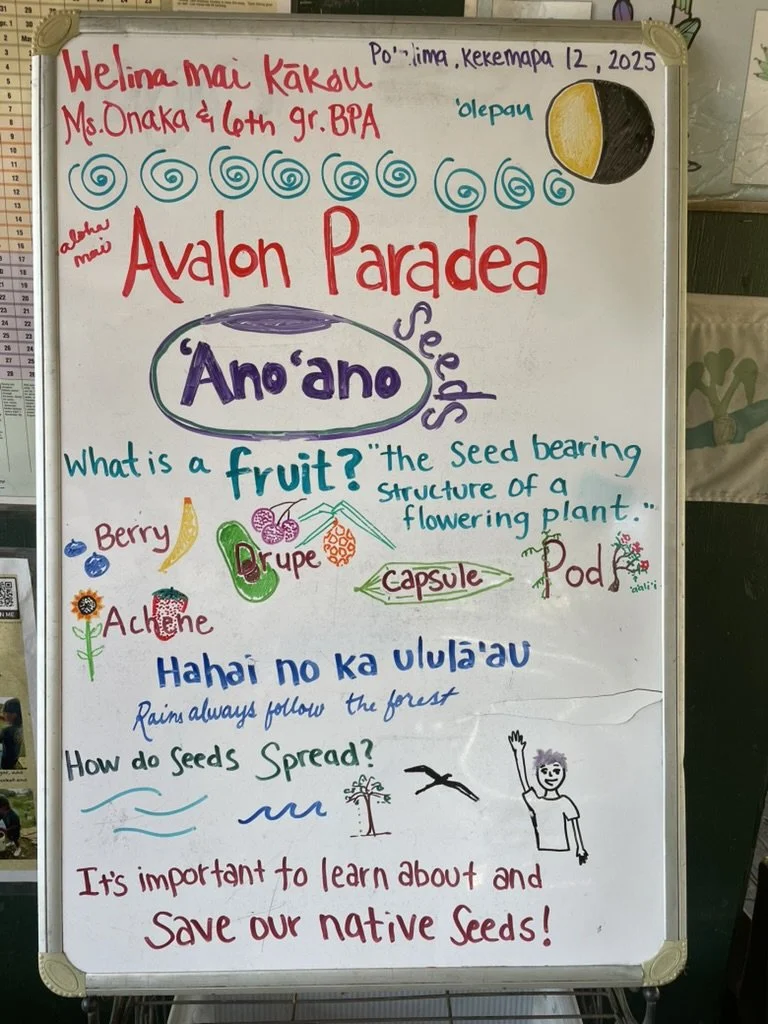 Welina mai Kākou
Poʻalima, Kekemapa 12, 2025
Ms. Onaka & 6th gr. BPA
ʻolepau
aloha
mai
Avalon Paradea
ʻAnoʻano
Seeds
What is a fruit? "the seed bearing
structure of a
flowering plant."
Berry
Drupe
Capsule
Pod
Achene
Hahai no ka ululāʻau
Rains always follow the forest
How do Seeds Spread?
It's important to learn about and
Save our native Seeds!